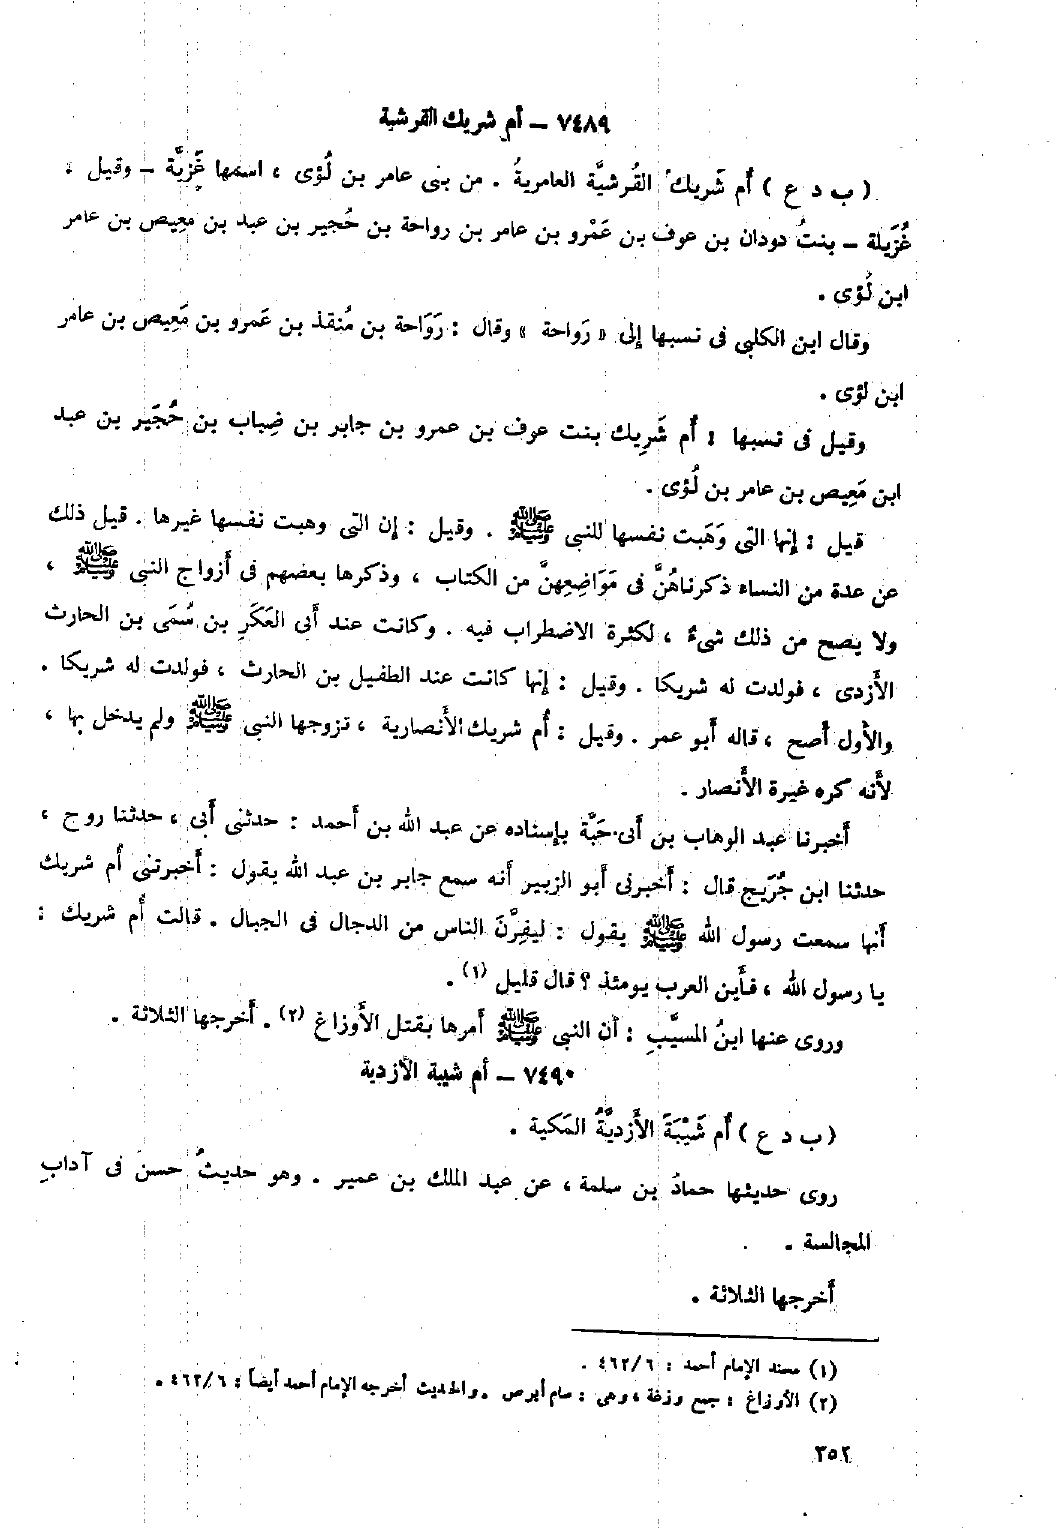 ٧٤٨٩ – أم شريك القرشية
( ب د ع ) أُم شَرِيك القُرشيَّة العامريةُ . من بنى عامر بن لُؤى ، اسمها غَزِيَّة – وقيل :
غُزَيلة – بنتُ دودان بن عوف بن عَمْرو بن عامر بن رواحة بن حُجير بن عبد بن مَعِيص بن عامر
ابن لُؤى .
وقال ابن الكلبى فى نسبها إِلى « رَواحة » وقال : رَوَاحة بن مُنقذ بن عَمرو بن مَعِيص بن عامر
ابن لؤى .
وقيل فى نسبها : أُم شَرِيك بنت عوف بن عمرو بن جابر بن ضِباب بن حُجَير بن عبد
ابن مَعِيص بن عامر بن لُؤى .
قيل : إِنها التى وَهَبت نفسها للنبى ﷺ . وقيل : إِن التى وهبت نفسها غيرها . قيل ذلك
عن عدة من النساء ذكرناهُنَّ فى مَوَاضِعِهنَّ من الكتاب ، وذكرها بعضهم فى أَزواج النبى ﷺ ،
ولا يصح من ذلك شىءٌ ، لكثرة الاضطراب فيه . وكانت عند أَبى العَكَرِ بن سُمَى بن الحارث
الأَزدى ، فولدت له شريكا . وقيل : إِنها كانت عند الطفيل بن الحارث ، فولدت له شريكا .
والأَول أَصح ، قاله أَبو عمر . وقيل : أُم شريك الأَنصارية ، تزوجها النبى ﷺ ولم يدخل بها ،
لأَنه كره غيرة الأَنصار .
أَخبرنا عبد الوهاب بن أَبى حَبَّة بإِسناده عن عبد الله بن أَحمد : حدثنى أَبى ، حدثنا روح ،
حدثنا ابن جُرَيج قال : أَخبرنى أَبو الزبير أَنه سمع جابر بن عبد الله يقول : أَخبرتنى أُم شريك
أَنها سمعت رسول الله ﷺ يقول : ليفِرَّنَ الناس من الدجال فى الجبال . قالت أُم شريك :
يا رسول الله ، فأَين العرب يومئذ ؟ قال قليل (١) .
وروى عنها ابنُ المسيَّبِ : أَن النبى ﷺ أَمرها بقتل الأَوزاغ (٢) . أَخرجها الثلاثة .
٧٤٩٠ – أم شيبة الأزدية
( ب د ع ) أُم شَيْبَةَ الأَزديَّةُ المَكية .
روى حديثها حمادُ بن سلمة ، عن عبد الملك بن عمير . وهو حديثٌ حسن فى آدابِ
المجالسة .
أَخرجها الثلاثة .
(١) مسند الإمام أحمد : ٤٦٢/٦ .
(٢) الأوزاغ : جمع وزغة ، وهى : سام أبرص . والحديث أخرجه الإمام أحمد أيضاً : ٤٦٢/٦ .
٣٥٢